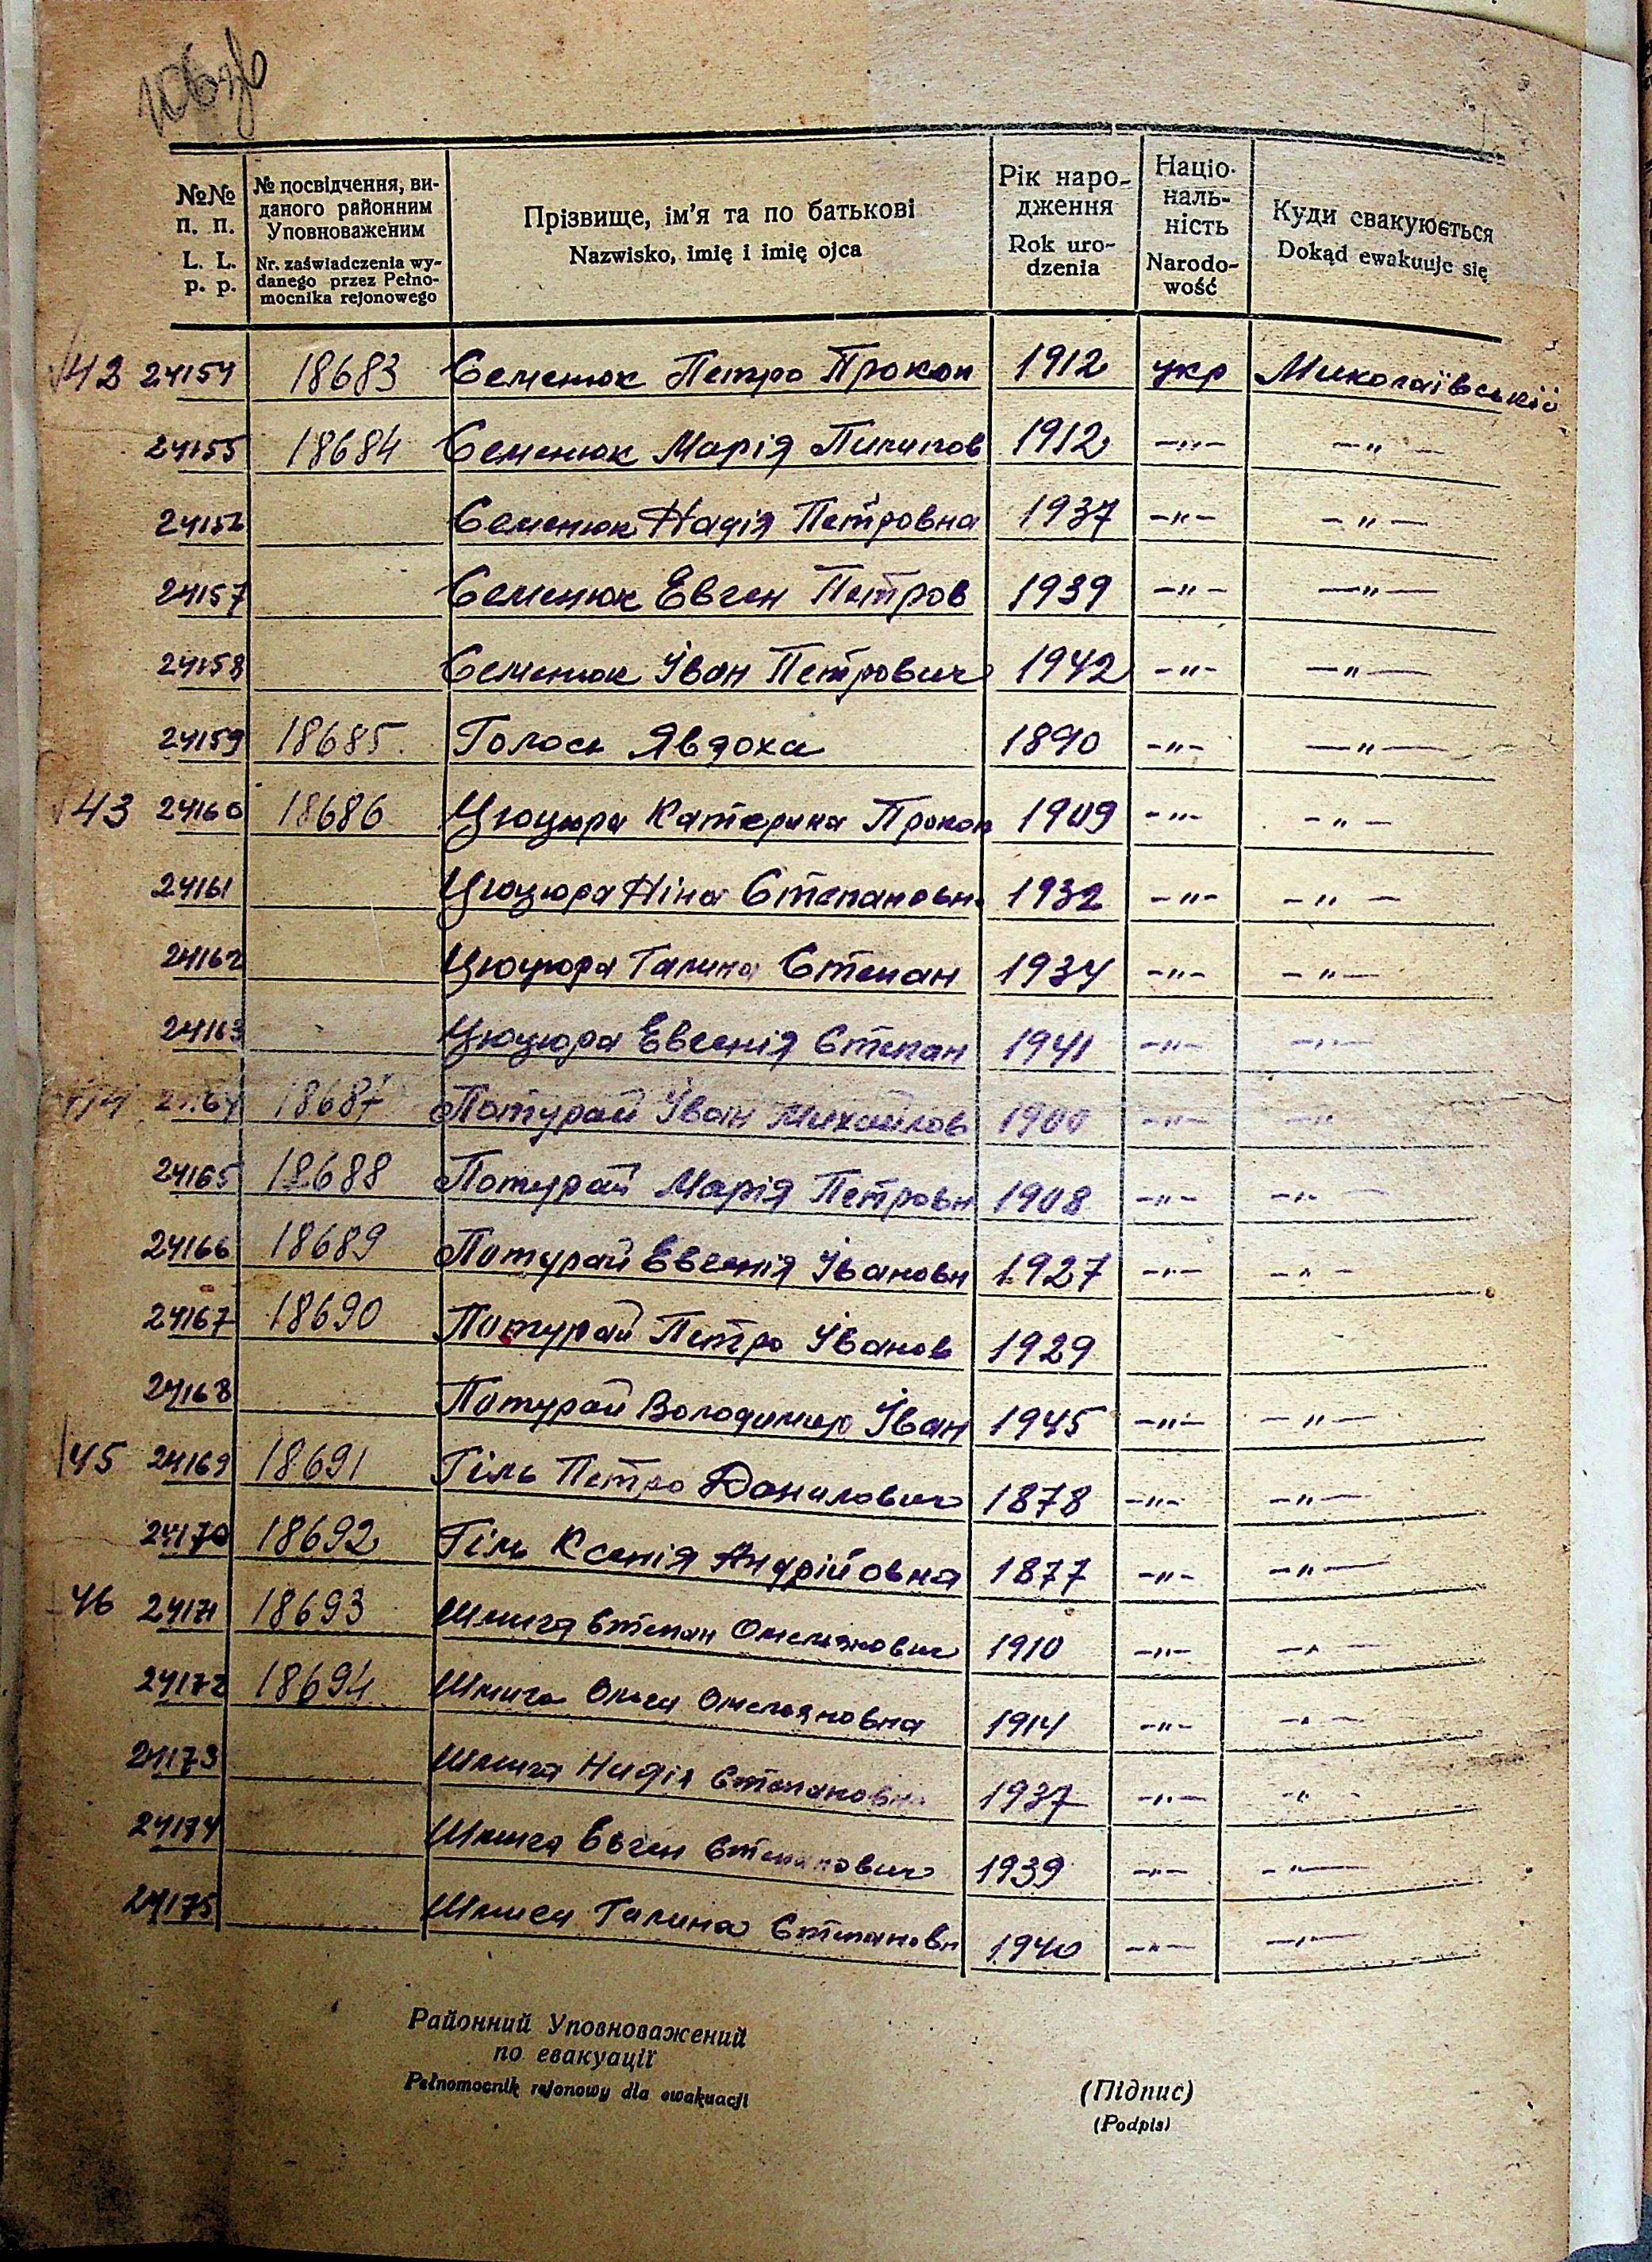 106зв
№№ п. п. L. L. p. p.
№ посвідчення, ви-
даного районним
Уповноваженим
Nr. zaświadczenia wy-
danego przez Pełno-
mocnika rejonowego
Прізвище, ім’я та по батькові
Nazwisko, imię i imię ojca
Рік наро-
дження
Rok uro-
dzenia
Націо-
наль-
ність
Narodo-
wość
Куди евакуюється
Dokąd ewakuuje się
42 24154 18683 Семенюк Петро Прокоп 1912 укр Миколаївській
24155 18684 Семенюк Марія Пилипов 1912 -"- -"-
24156 Семенюк Надія Петровна 1937 -"- -"-
24157 Семенюк Евген Петров 1939 -"- -"-
24158 Семенюк Іван Петрович 1942 -"- -"-
24159 18685 Голось Явдоха 1890 -"- -"-
43 24160 18686 Цюцюра Катерина Прокоп 1909 -"- -"-
24161 Цюцюра Ніна Степановна 1932 -"- -"-
24162 Цюцюра Галина Степан 1934 -"- -"-
24163 Цюцюра Евгенія Степан 1941 -"- -"-
44 24164 18687 Потурай Іван Михайлов 1900 -"- -"-
24165 18688 Потурай Марія Петровн 1908 -"- -"-
24166 18689 Потурай Евгенія Івановн 1927 -"- -"-
24167 18690 Потурай Петро Іванов 1929
24168 Потурай Володимир Іван 1945 -"- -"-
45 24169 18691 Гіль Петро Данилович 1878 -"- -"-
24170 18692 Гіль Ксенія Андрійовна 1877 -"- -"-
46 24171 18693 Шмига Степан Омелянович 1910 -"- -"-
24172 18694 Шмига Ольга Омеляновна 1914 -"- -"-
24173 Шмига Надія Степановна 1937 -"- -"-
24174 Шмига Евген Степанович 1939 -"- -"-
24175 Шмига Галина Степановн 1940 -"- -"-
Районний Уповноважений
по евакуації
Pełnomocnik rejonowy dla ewakuacji
(Підпис)
(Podpis)